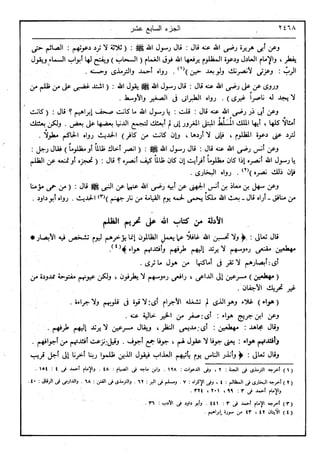 ٢٤٦٨ الجزء السابع عشر
وعن أبي هريرة رضى الله عنه قال : قال رسول الله ﷺ : ( ثلاثة لا ترد دعوتهم : الصائم حتى
يفطر ، والإمام العادل ودعوة المظلوم يرفعها الله فوق الغمام ( السحاب ) ويفتح لها أبواب السماء ويقول
الرب : وعزتى لأنصرنك ولو بعد حين )(١) . رواه أحمد والترمذى وحسنه .
وروى عن على رضى الله عنه قال : قال رسول الله ﷺ يقول الله : ( اشتد غضبى على من ظلم من
لا يجد له ناصراً غيرى ) . رواه الطبرانى فى الصغير والأوسط .
وعن أبى ذر رضى الله عنه قال : قلت : يا رسول الله ما كانت صحف إبراهيم ؟ قال : ( كانت
أمثالاً كلها ، أيها الملك المسلط المبتلى المغرور إنى لم أبعثك لتجمع الدنيا بعضها على بعض . ولكن بعثتك
لترد عنى دعوة المظلوم ، فإنى لا أردها ، وإن كانت من كافر ) الحديث رواه الحاكم مطولاً .
وعن أنس رضى الله عنه قال : قال رسول الله ﷺ : ( انصر أخاك ظالماً أو مظلوماً ) فقال رجل :
يا رسول الله أنصره إذا كان مظلوماً أفرأيت إن كان ظالماً كيف أنصره ؟ قال : ( تحجزه أو تمنعه عن الظلم
فإن ذلك نصره )(٢) . رواه البخارى .
وعن سهل بن معاذ بن أنس الجهنى عن أبيه رضى الله عنهما عن النبى ﷺ قال : ( من حمى مؤمنا
من منافق - أراه قال - بعث الله ملكاً يحمى لحمه يوم القيامة من نار جهنم )(٣) الحديث . رواه أبو داود .
الأدلة من كتاب الله على تحريم الظلم
قال تعالى : ﴿ ولا تحسبن الله غافلاً عما يعمل الظالمون إنما يؤخرهم ليوم تشخص فيه الأبصار *
مهطعين مقنعى رءوسهم لا يرتد إليهم طرفهم وأفئدتهم هواء ﴾(٤) .
أى : أبصارهم لا تقر فى أماكنها من هول ما ترى .
( مهطعين ) مسرعين إلى الداعى ، رافعى رءوسهم لا يطرفون ، ولكن عيونهم مفتوحة ممدودة من
غير تحريك الأجفان .
( هواء ) خلاء وهو الذى لم تشغله الأجرام أى : لا قوة فى قلوبهم ولا جراءة .
وعن ابن جريج هواء : أى : صفر من الخير خالية عنه .
وقال مجاهد : مهطعين : أى : مديمى النظر ، ويقال مسرعين لا يرتد إليهم طرفهم .
وأفئدتهم هواء : يعنى جوفا لا عقول لهم ، جوفا جمع أجوف . وقيل : نزعت أفئدتهم من أجوافهم .
وقال تعالى : ﴿ وأنذر الناس يوم يأتيهم العذاب فيقول الذين ظلموا ربنا أخرنا إلى أجل قريب
(١) أخرجه الترمذى فى الجنة : ٢ ، وفى الدعوات : ١٢٨ . وابن ماجه فى الصيام : ٤٨ . والإمام أحمد فى ٤ : ١٥٤ .
(٢) أخرجه البخارى فى المظالم : ٤ ، وفى الإكراه : ٧ . ومسلم فى البر : ٦٢ . والترمذى فى الفتن : ٦٨ . والدارمى فى الرقاق : ٤٠ .
والإمام أحمد فى ٣ : ٩٩ ، ٢٠١ ، ٣٢٤ .
(٣) أخرجه الإمام أحمد فى ٣ : ٤٤١ . وأبو داود فى الأدب : ٣٦ .
(٤) الآيتان ٤٢ ، ٤٣ من سورة إبراهيم .